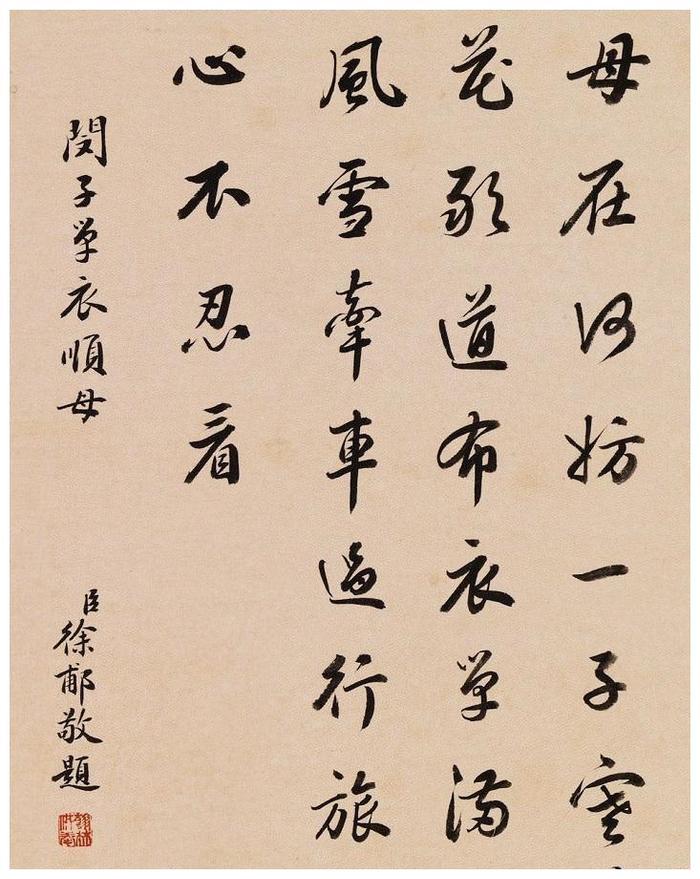 母在何妨一子寒
花道布衣單滿
風雪牽車過行旅
心不忍看
閔子單衣順母
臣徐郙敬題